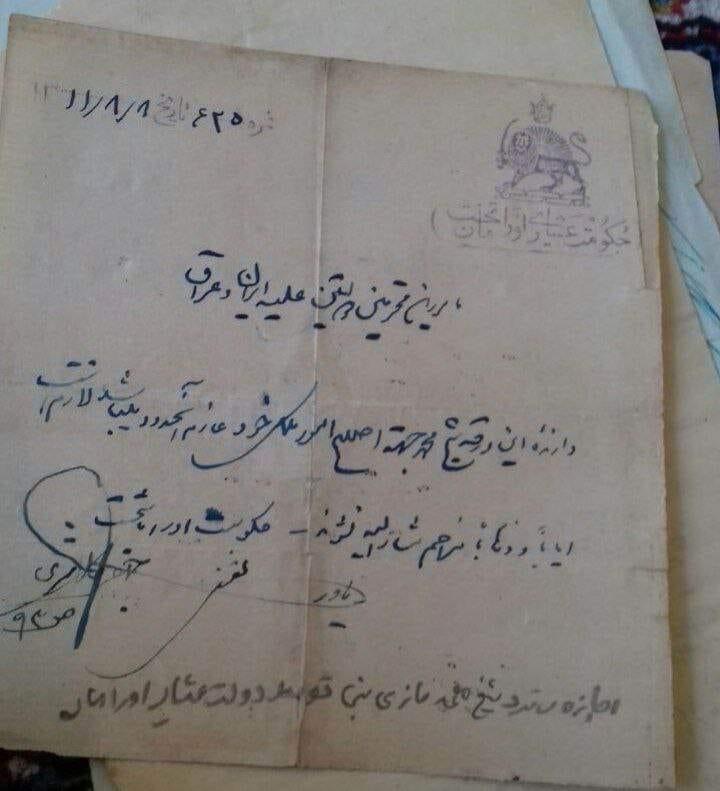 نمره ۶۲۵ تاریخ ۱۱/۸/۸
حکومت عشایری اورامان تخت
مامورین محترمین دولتین علیه ایران و عراق
دارنده این ورقه شیخ محمد جهة اصلاح امور ملکی خود عازم آنحدود میباشد لازم است
ایاباً و ذهاباً مزاحم مشارالیه نشوند – حکومت اورامان تخت
یاور
اجازه تردد شیخ محمد توسط دولت عشایر اورامان